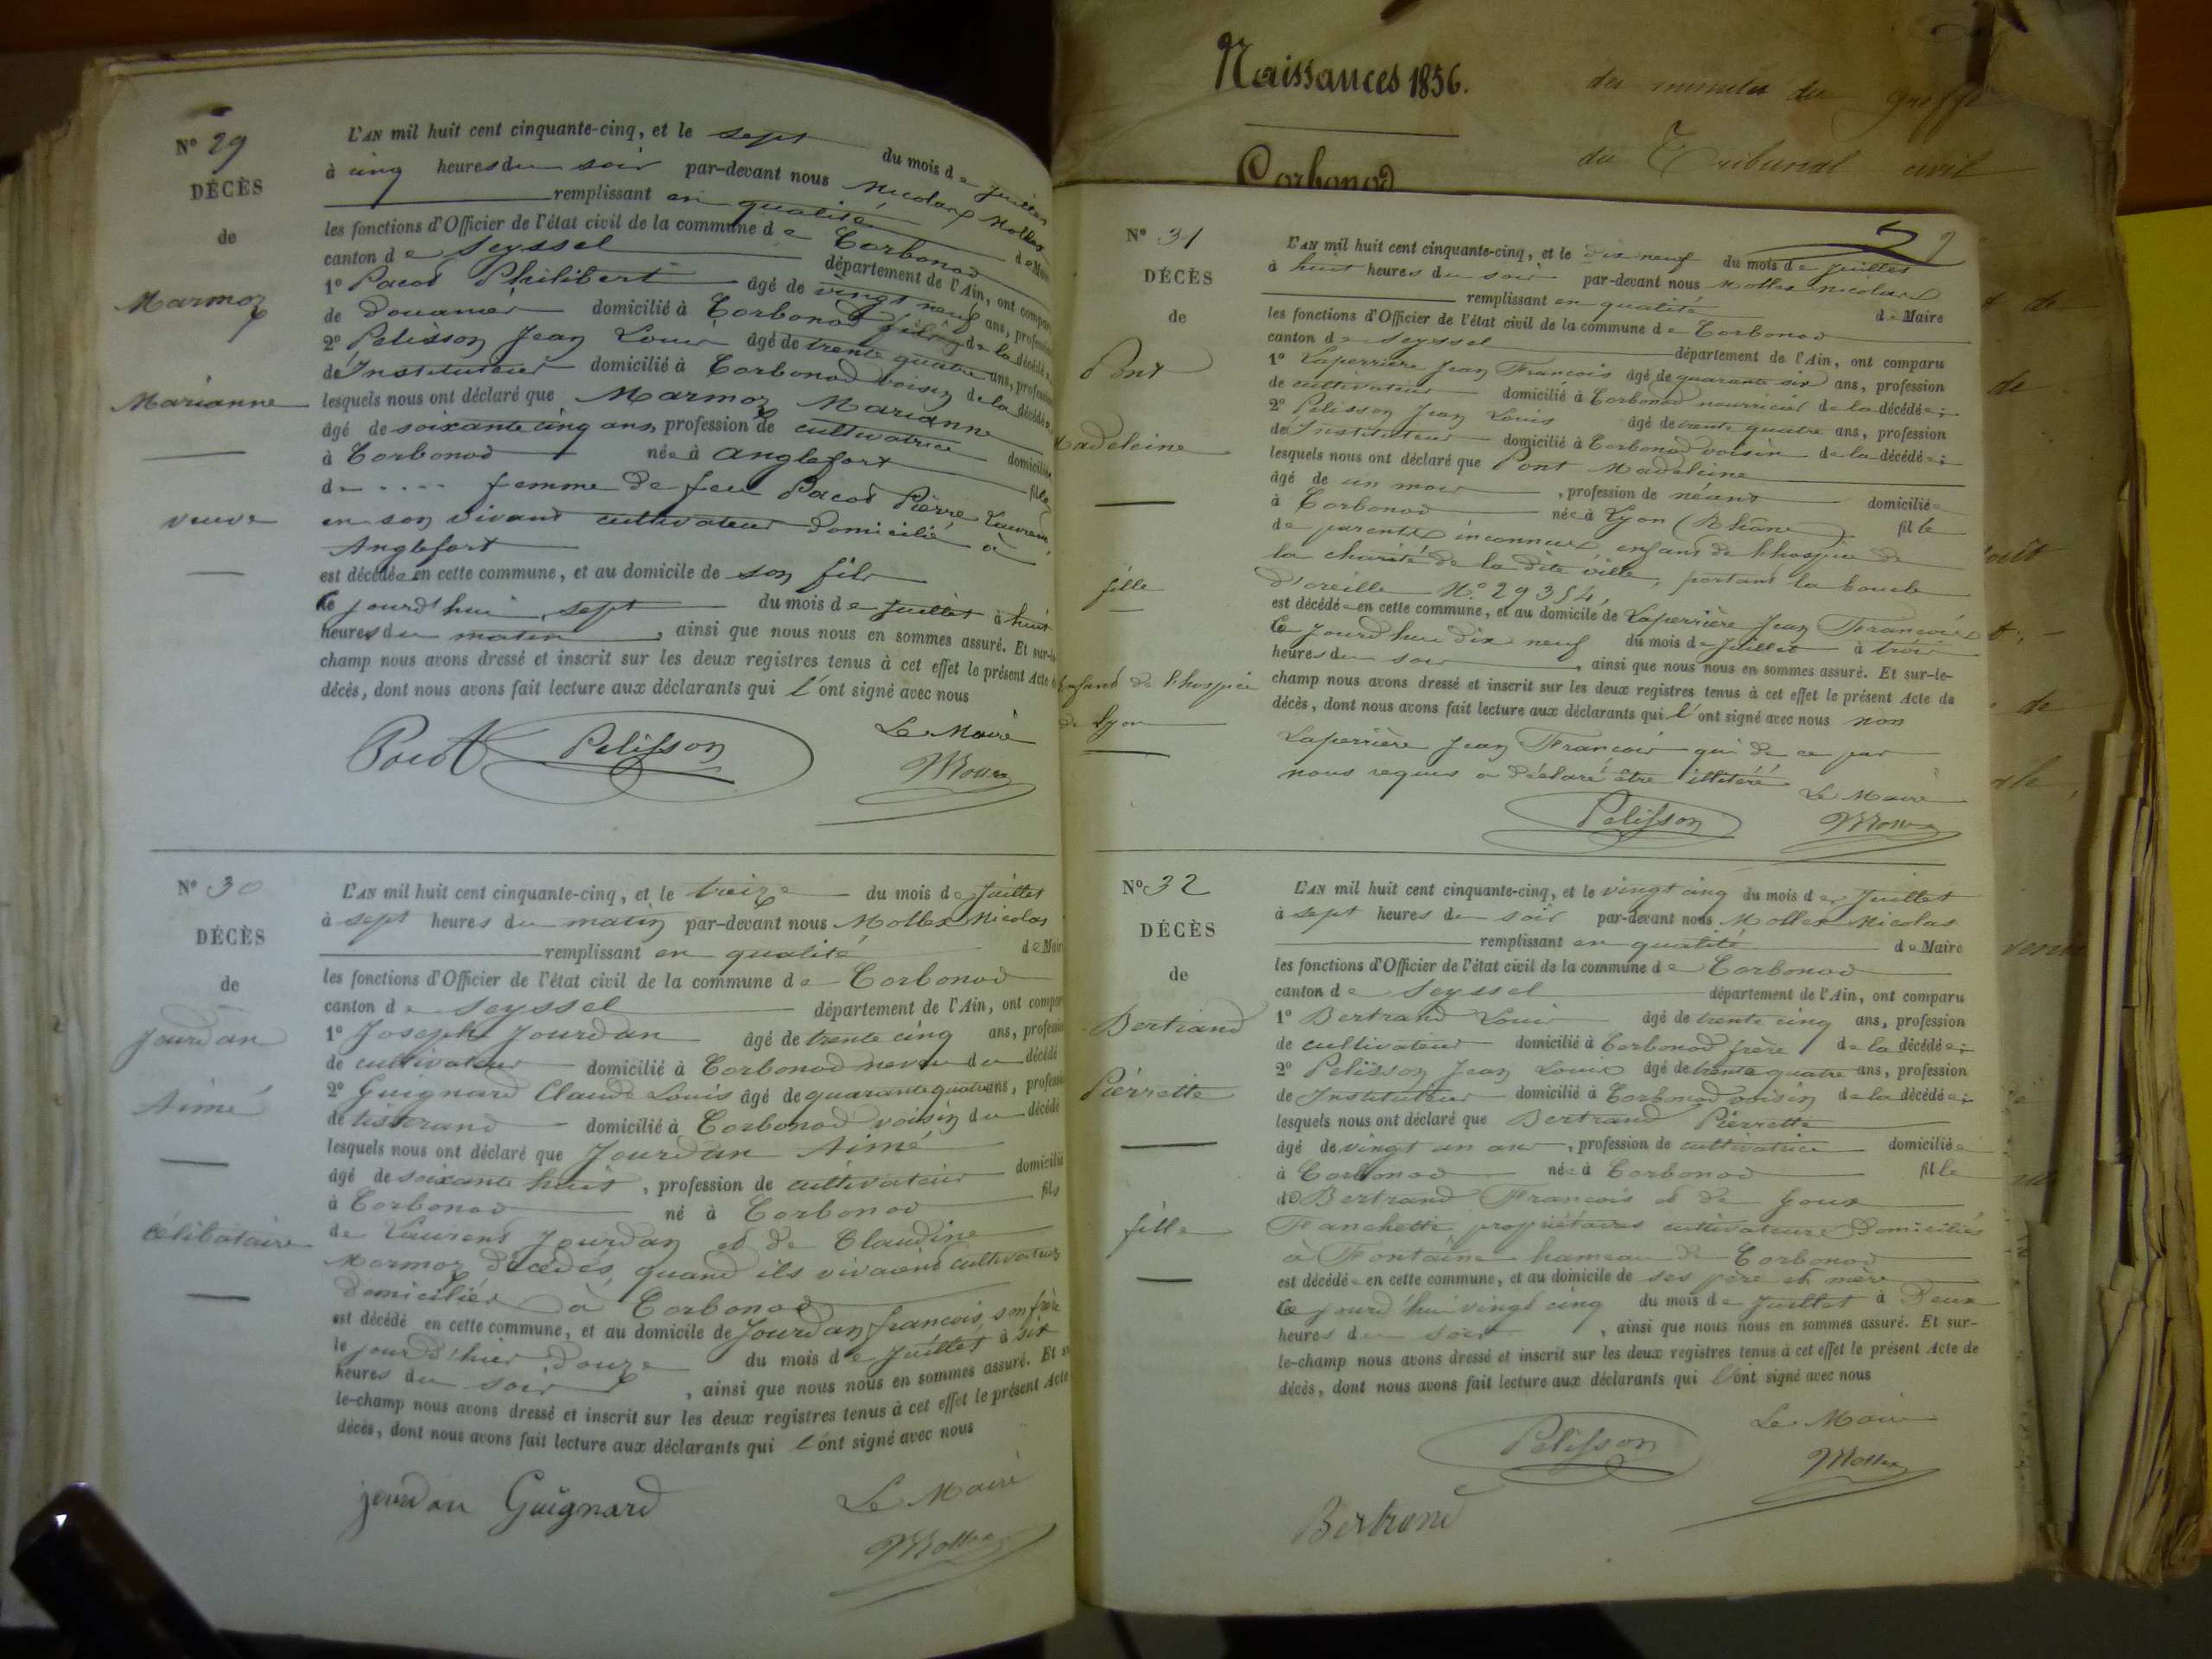 Naissances 1856.
Corbonod
des minutes du greffe
du Tribunal civil
N° 29
DÉCÈS
de
Marmoz
Marianne
veuve
L'AN mil huit cent cinquante-cinq, et le sept du mois de juillet
à cinq heures du soir par-devant nous Nicolas Mollex
remplissant en qualité de Maire
les fonctions d'Officier de l'état civil de la commune de Corbonod
canton de Seyssel département de l'Ain, ont comparu
1° Pacod Philibert âgé de vingt neuf ans, profession
de douanier domicilié à Corbonod fils de la décédée
2° Pelisson Jean Louis âgé de trente quatre ans, profession
de Instituteur domicilié à Corbonod voisin de la décédée
lesquels nous ont déclaré que Marmoz Marianne
âgé de soixante cinq ans, profession de cultivatrice domiciliée
à Corbonod née à Anglefort fille
de .... femme de feu Pacod Pierre Laurent,
en son vivant cultivateur domicilié à
Anglefort
est décédée en cette commune, et au domicile de son fils
ce jourd'hui sept du mois de juillet à huit
heures du matin, ainsi que nous nous en sommes assuré. Et sur-le-
champ nous avons dressé et inscrit sur les deux registres tenus à cet effet le présent Acte de
décès, dont nous avons fait lecture aux déclarants qui l'ont signé avec nous
Pelisson
Le Maire
Mollex
N° 30
DÉCÈS
de
Jourdan
Aimé
célibataire
L'AN mil huit cent cinquante-cinq, et le treize du mois de Juillet
à sept heures du matin par-devant nous Mollex Nicolas
remplissant en qualité de Maire
les fonctions d'Officier de l'état civil de la commune de Corbonod
canton de Seyssel département de l'Ain, ont comparu
1° Joseph Jourdan âgé de trente cinq ans, profession
de cultivateur domicilié à Corbonod neveu du décédé
2° Guignard Claude Louis âgé de quarante quatre ans, profession
de tisserand domicilié à Corbonod voisin du décédé
lesquels nous ont déclaré que Jourdan Aimé
âgé de soixante huit, profession de cultivateur domicilié
à Corbonod né à Corbonod fils
de Laurent Jourdan et de Claudine
Marmoz décédés, quand ils vivaient cultivateurs
domiciliés à Corbonod
est décédé en cette commune, et au domicile de Jourdan françois son frère
le jour d'hier douze du mois de juillet à six
heures du soir, ainsi que nous nous en sommes assuré. Et sur-
le-champ nous avons dressé et inscrit sur les deux registres tenus à cet effet le présent Acte
décès, dont nous avons fait lecture aux déclarants qui l'ont signé avec nous
jourdan Guignard
Le Maire
Mollex
N° 31
DÉCÈS
de
Pont
Madeleine
fille
Enfant de l'hospice
de Lyon
L'AN mil huit cent cinquante-cinq, et le dix neuf du mois de juillet
à huit heures du soir par-devant nous Mollex Nicolas
remplissant en qualité de Maire
les fonctions d'Officier de l'état civil de la commune de Corbonod
canton de Seyssel département de l'Ain, ont comparu
1° Laperrière Jean François âgé de quarante six ans, profession
de cultivateur domicilié à Corbonod nourricier de la décédée;
2° Pelisson Jean Louis âgé de trente quatre ans, profession
de Instituteur domicilié à Corbonod voisin de la décédée;
lesquels nous ont déclaré que Pont Madeleine
âgé de un mois, profession de néant domiciliée
à Corbonod née à Lyon (Rhône) fille
de parents inconnus, enfant de l'hospice de
la charité de la dite ville, portant la boucle
d'oreille N° 29354,
est décédée en cette commune, et au domicile de Laperrière Jean François
ce jourd'hui dix neuf du mois de Juillet à trois
heures du soir, ainsi que nous nous en sommes assuré. Et sur-le-
champ nous avons dressé et inscrit sur les deux registres tenus à cet effet le présent Acte de
décès, dont nous avons fait lecture aux déclarants qui l'ont signé avec nous non
Laperrière Jean François qui de ce par
nous requis a déclaré être illitéré
Le Maire
Pelisson
Mollex
N° 32
DÉCÈS
de
Bertrand
Pierrette
fille
L'AN mil huit cent cinquante-cinq, et le vingt cinq du mois de Juillet
à sept heures du soir par-devant nous Mollex Nicolas
remplissant en qualité de Maire
les fonctions d'Officier de l'état civil de la commune de Corbonod
canton de Seyssel département de l'Ain, ont comparu
1° Bertrand Louis âgé de trente cinq ans, profession
de cultivateur domicilié à Corbonod frère de la décédée;
2° Pelisson Jean Louis âgé de trente quatre ans, profession
de Instituteur domicilié à Corbonod voisin de la décédée;
lesquels nous ont déclaré que Bertrand Pierrette
âgé de vingt un ans, profession de cultivatrice domiciliée
à Corbonod née à Corbonod fille
de Bertrand François et de Goux
Franchette propriétaires cultivateurs domiciliés
à Fontaine hameau de Corbonod
est décédée en cette commune, et au domicile de ses père et mère
ce jourd'hui vingt cinq du mois de Juillet à Deux
heures du soir, ainsi que nous nous en sommes assuré. Et sur-
le-champ nous avons dressé et inscrit sur les deux registres tenus à cet effet le présent Acte de
décès, dont nous avons fait lecture aux déclarants qui l'ont signé avec nous
Le Maire
Pelisson
Mollex
Bertrand